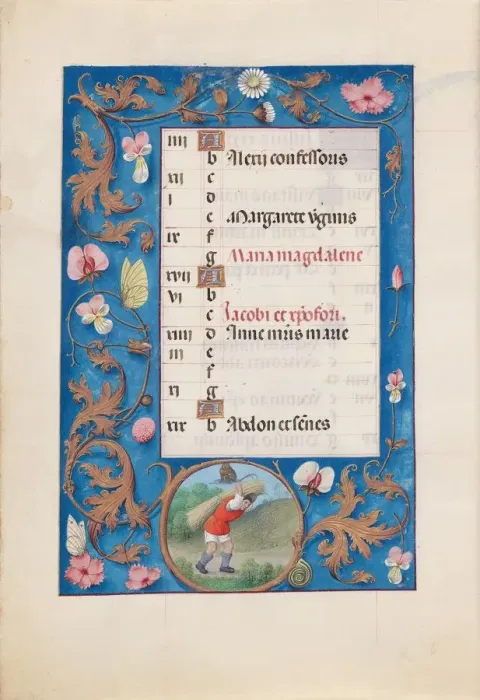 iiij A
b Alexii confessoris
xij c
i d
e Margarete v̓ginis
ix f
g Maria magdalene
xvij A
vi b
c Jacobi et xp̄ofori.
xiiij d Anne mr̄is marie
iij e
f
xi g
A
xix b Abdon et senes